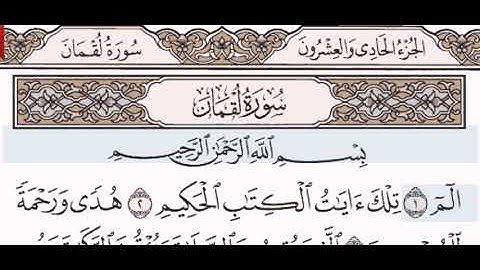 الجُزْءُ الحَادِي وَالعِشْرُونَ
سُورَةُ لُقْمَانَ
سُورَةُ لُقْمَانَ
بِسْمِ اللَّهِ الرَّحْمَٰنِ الرَّحِيمِ
الٓمٓ ١ تِلْكَ ءَايَاتُ الْكِتَابِ الْحَكِيمِ ٢ هُدًى وَرَحْمَةً